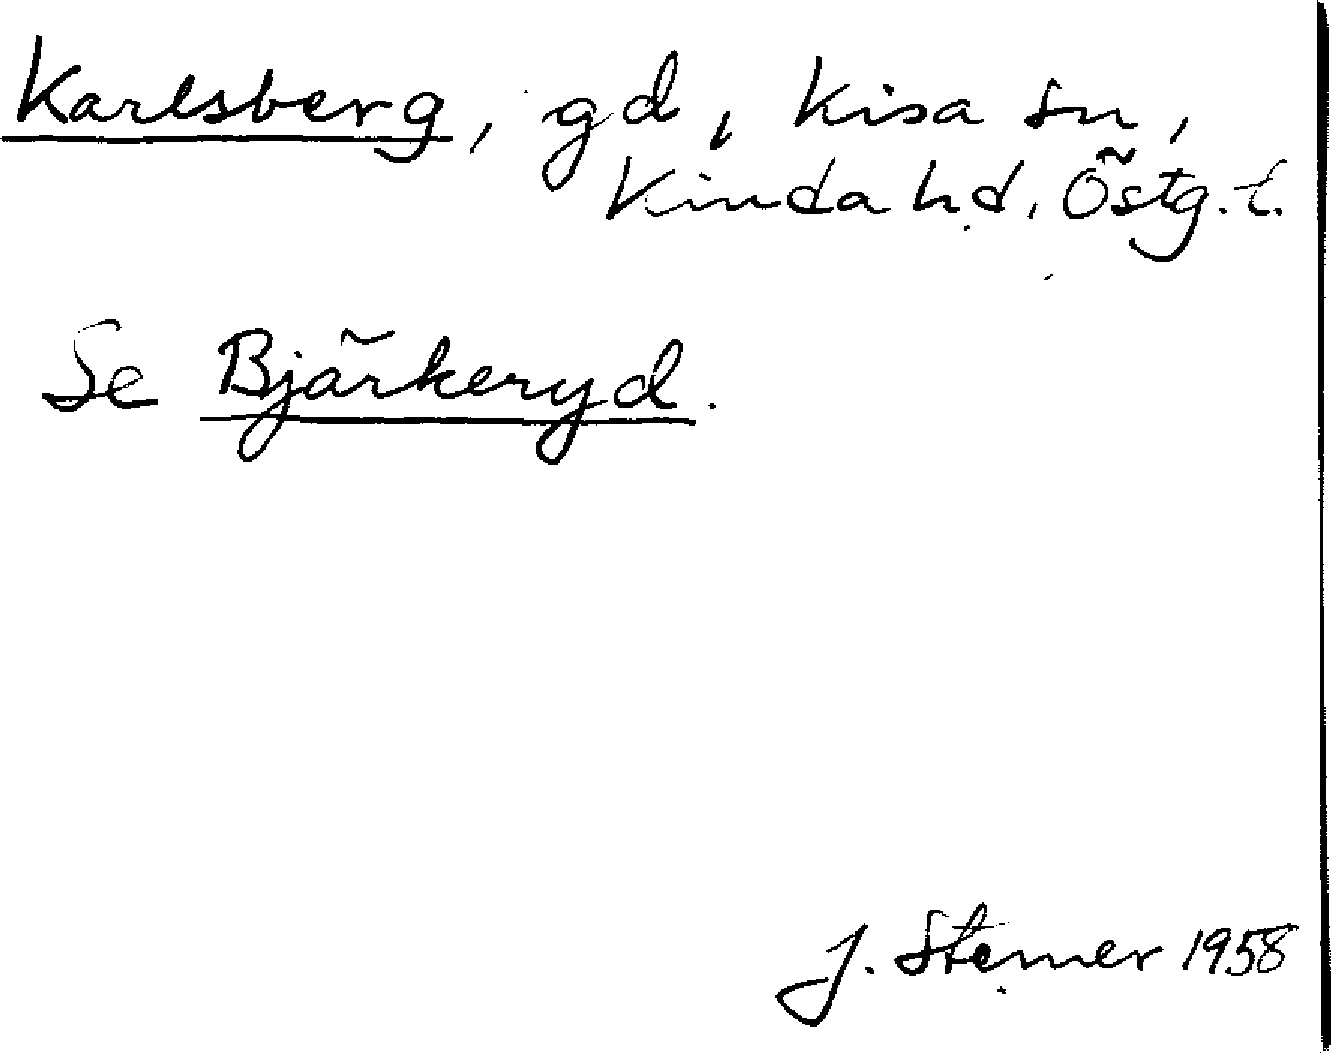 Karlsberg, gd, Kisa sn,
Kinda hd, Östg. l.
Se Bjärkeryd.
J. Sterner 1958